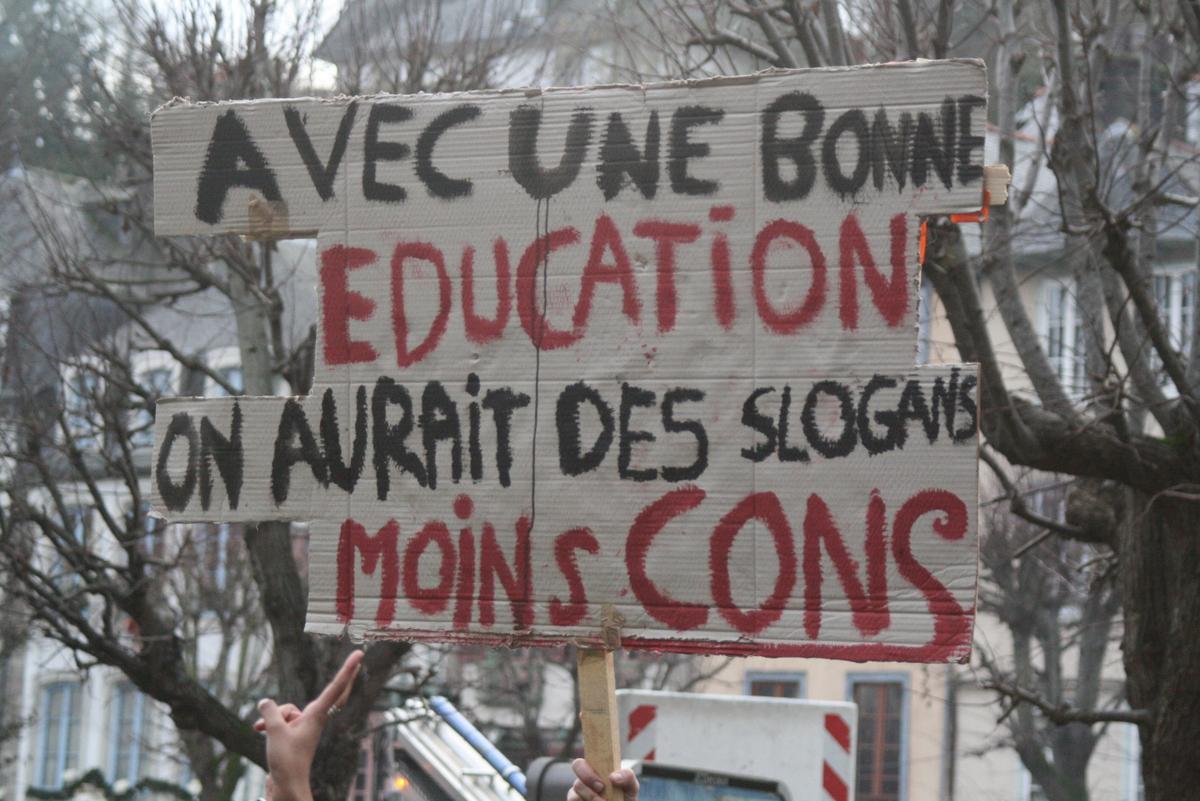 AVEC UNE BONNE
EDUCATION
ON AURAiT DES SLOGANS
MOiNS CONS